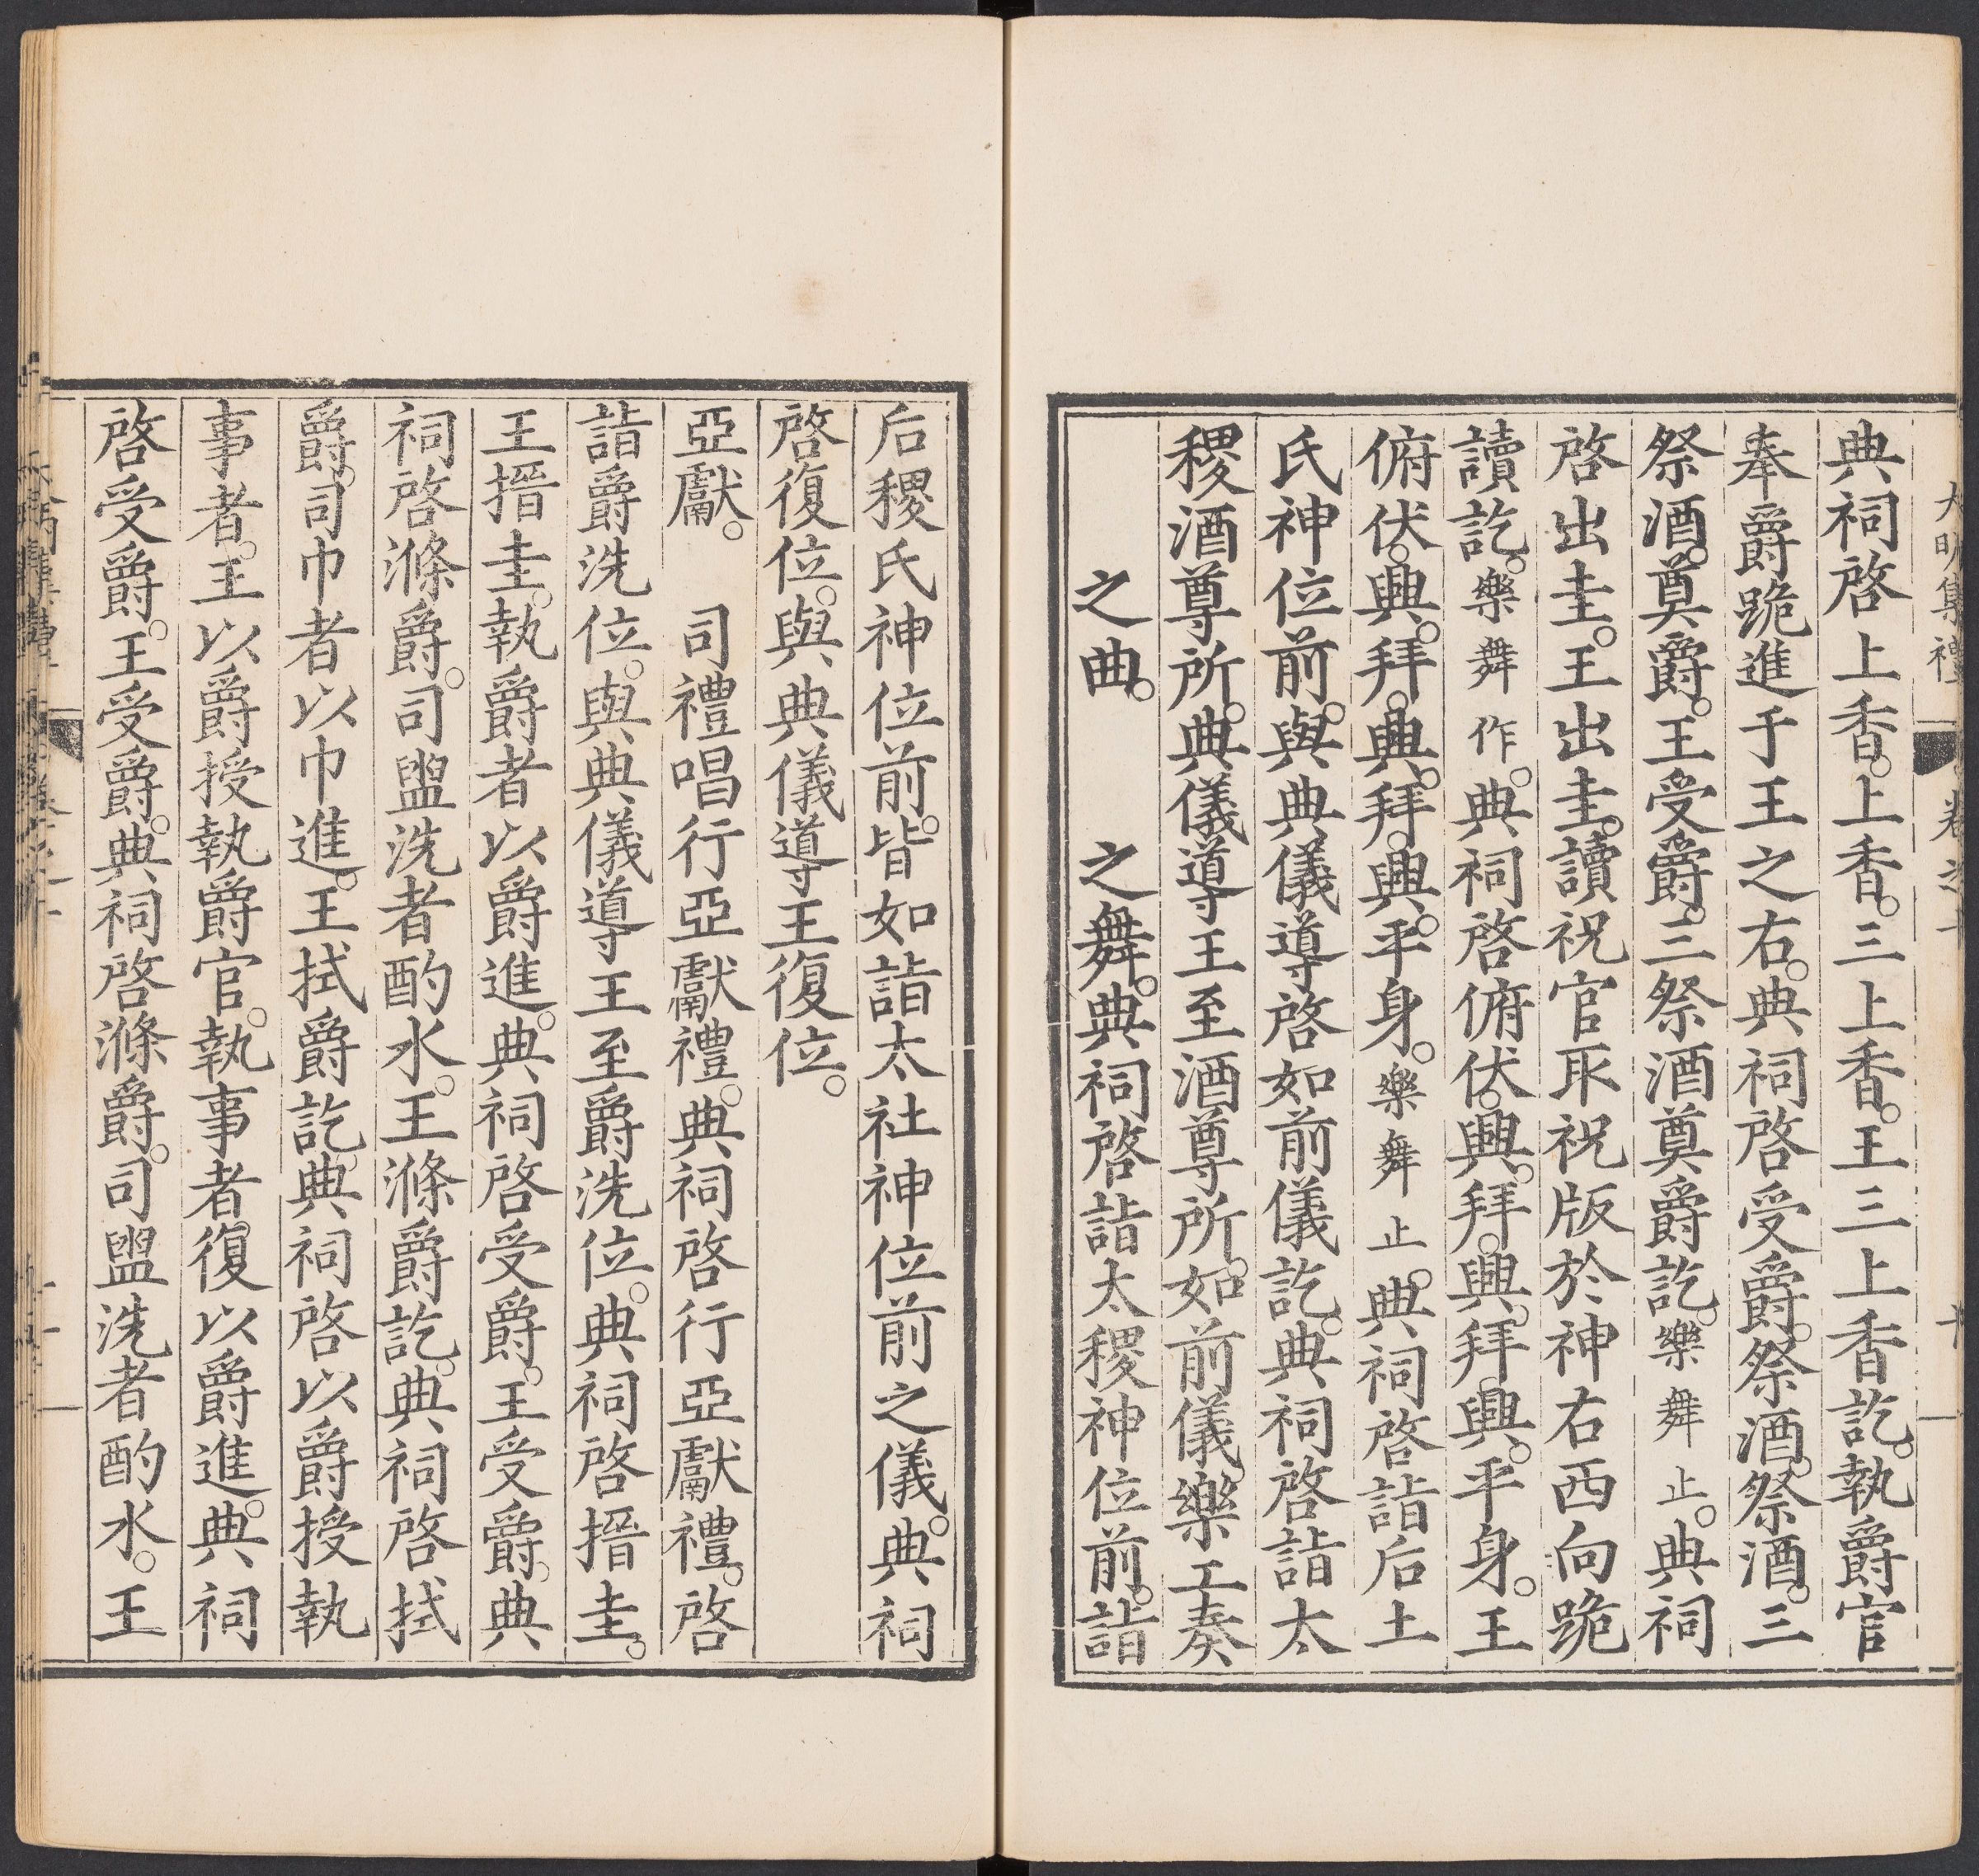 大明集禮 卷之十 十
典祠啓上香。上香。三上香。王三上香訖。執爵官
奉爵跪進于王之右。典祠啓受爵。祭酒。祭酒。三
祭酒。奠爵。王受爵。三祭酒奠爵訖。樂舞止。典祠
啓出圭。王出圭。讀祝官取祝版於神右西向跪
讀訖。樂舞作。典祠啓俯伏。興。拜。興。拜。興。平身。王
俯伏。興。拜。興。拜。興。平身。樂舞止。典祠啓詣后土
氏神位前。與典儀導啓如前儀訖。典祠啓詣太
稷酒尊所。典儀導王至酒尊所。如前儀。樂工奏
之曲。 之舞。典祠啓詣太稷神位前。詣
后稷氏神位前。皆如詣太社神位前之儀。典祠
啓復位。與典儀導王復位。
亞獻。 司禮唱行亞獻禮。典祠啓行亞獻禮。啓
詣爵洗位。與典儀導王至爵洗位。典祠啓搢圭。
王搢圭。執爵者以爵進。典祠啓受爵。王受爵。典
祠啓滌爵。司盥洗者酌水。王滌爵訖。典祠啓拭
爵。司巾者以巾進。王拭爵訖。典祠啓以爵授執
事者。王以爵授執爵官。執事者。復以爵進。典祠
啓受爵。王受爵。典祠啓滌爵。司盥洗者酌水。王